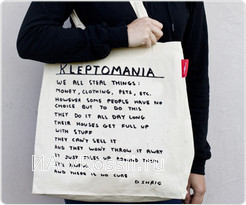 KLEPTOMANIA
WE ALL STEAL THINGS:
MONEY, CLOTHING, PETS, ETC.
HOWEVER SOME PEOPLE HAVE NO
CHOICE BUT TO DO THIS
THEY DO IT ALL DAY LONG
THEIR HOUSES GET FULL UP
WITH STUFF
THEY CAN'T SELL IT
AND THEY WON'T THROW IT AWAY
IT JUST PILES UP AROUND THEM
IT'S
AND THERE IS NO CURE
D. SHRIG